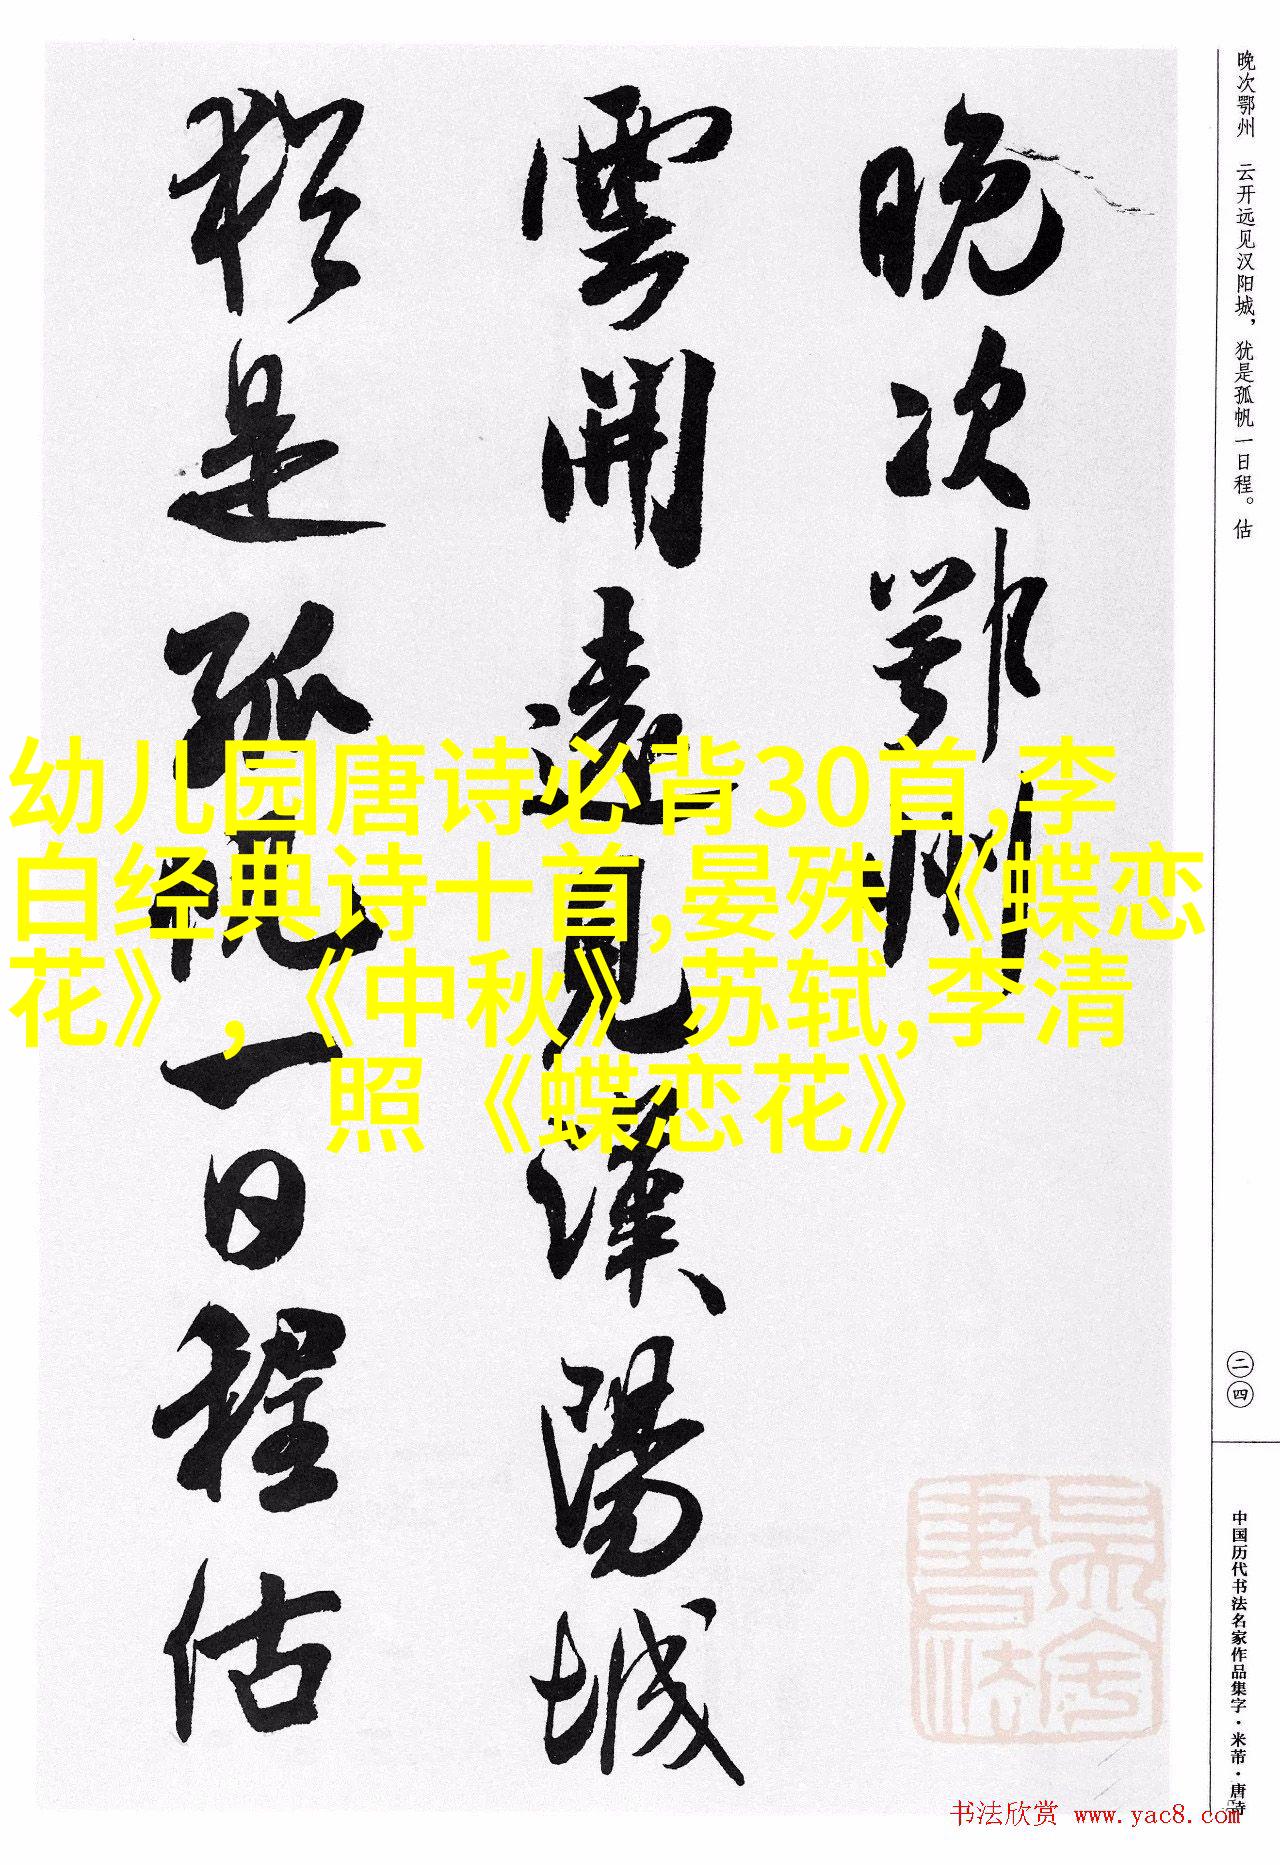 晚次鄂州
雲開遠見漢陽城
猶是孤帆一日程估
晚次鄂州 云开远见汉阳城，犹是孤帆一日程。估
二四
中国历代书法名家作品集字·米芾·唐诗
幼儿园唐诗必背30首,李
白经典诗十首,晏殊《蝶恋
花》,《中秋》苏轼,李清
照《蝶恋花》
书法欣赏 www.yac8.com